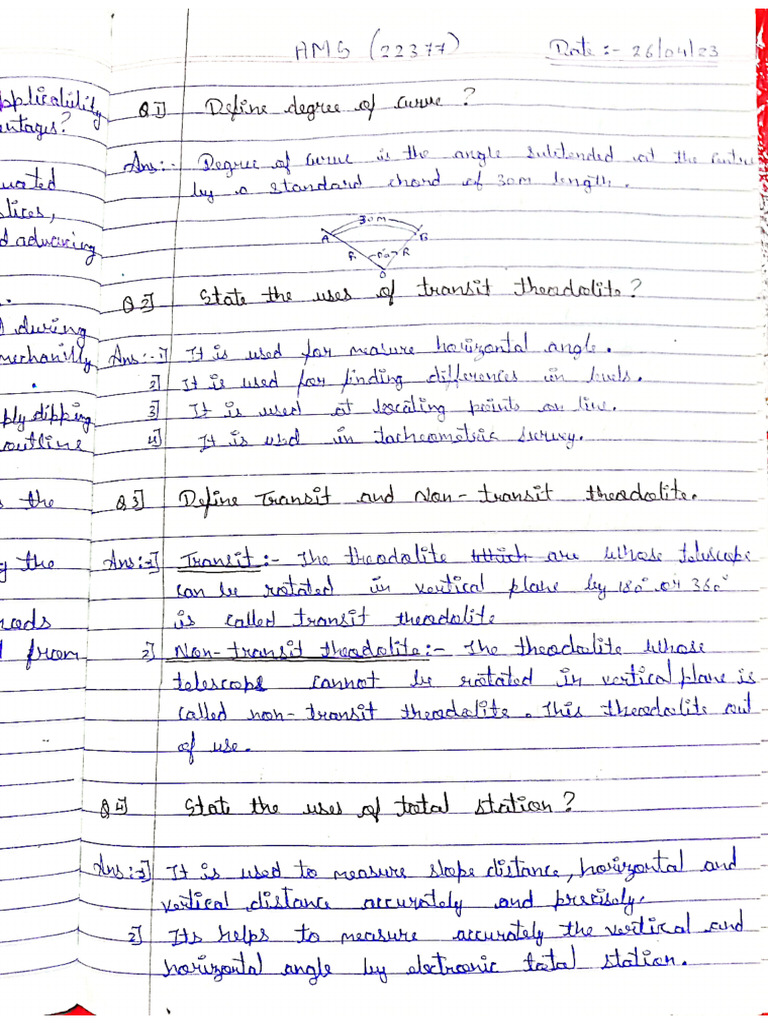 AMS (22377)
Date :- 26/04/23
pplicability
ntages?
uated
slices,
d advancing
d during
mechanically
ply dipping
outline
s the
g the
hods
d from
Q 1] Define degree of curve ?
Ans:- Degree of curve is the angle subtended at the centre
by a standard chord of 30m length.
30m
A B
R D° R
O
Q 2] State the uses of transit theodolite?
Ans:- 1] It is used for measure horizontal angle.
2] It is used for finding differences in levels.
3] It is used at locating points on line.
4] It is used in tacheometric survey.
Q 3] Define Transit and Non-transit theodolite.
Ans:-1] Transit:- The theodolite which are whose telescope
can be rotated in vertical plane by 180° or 360°
is called transit theodolite
2] Non-transit theodolite:- The theodolite whose
telescope cannot be rotated in vertical plane is
called non-transit theodolite. This theodolite out
of use.
Q 4] State the uses of total station?
Ans:-1] It is used to measure slope distance, horizontal and
vertical distance accurately and precisely.
2] Its helps to measure accurately the vertical and
horizontal angle by electronic total station.